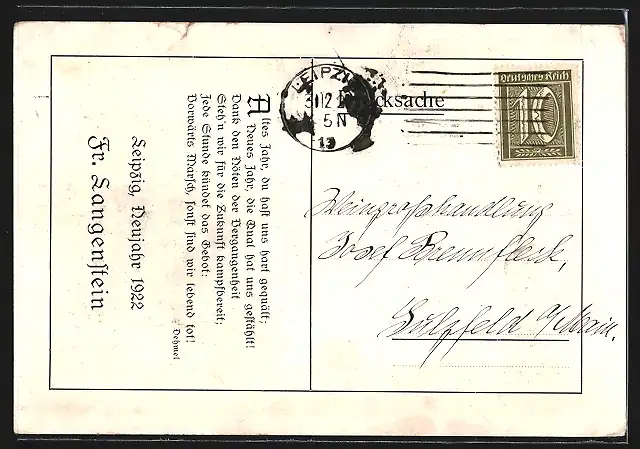 Altes Jahr, du hast uns hart gequält;
Neues Jahr, die Qual hat uns gestählt!
Dank den Nöten der Vergangenheit
Stehn wir für die Zukunft kampfbereit;
Jede Stunde kündet das Gebot:
Vorwärts Marsch, sonst sind wir lebend tot!
Dehmel
Leipzig, Neujahr 1922
Fr. Langenstein
LEIPZIG
5 N
13
Drucksache
Deutsches Reich
10
Weingrosshandlung
Josef Brennfleck,
Sulzfeld a/Main.